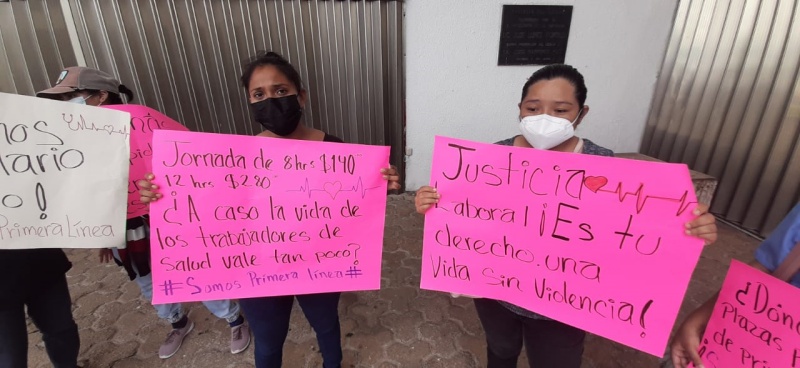 mos
lario
o!
Primera Línea
Jornada de 8hrs $140
12 hrs $280
¿A caso la vida de
los trabajadores de
salud vale tan poco?
#Somos Primera línea#
Justicia
Laboral ¡Es tu
derecho.una
Vida sin Violencia!
¿Don
plazas
de pri